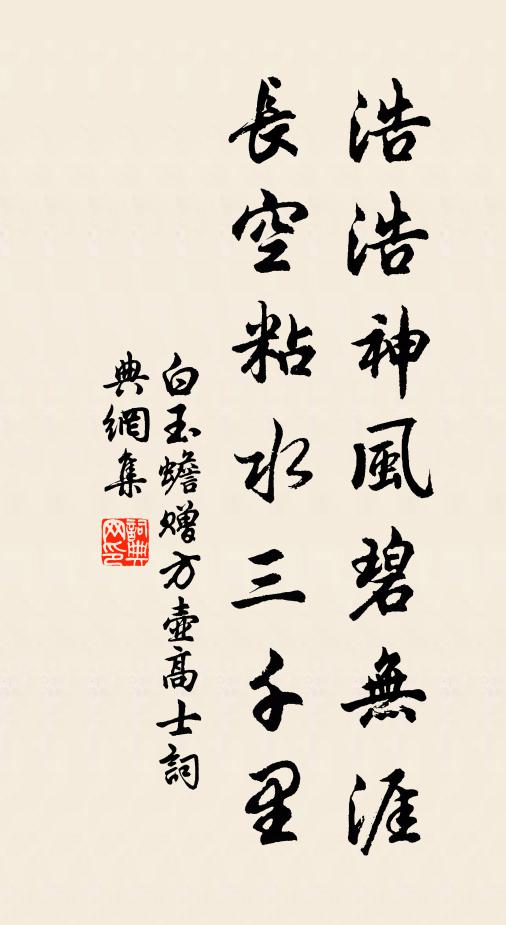 浩浩神風碧無涯
長空粘水三千里
白玉蟾贈方壺高士詞
典網集
詞典網印